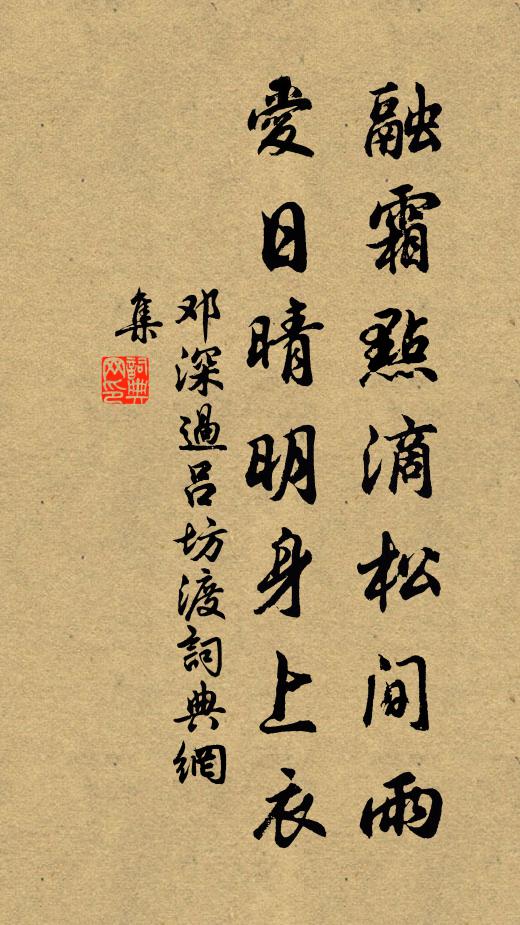 融霜點滴松間雨
愛日晴明身上衣
邓深過吕坊渡詞典網
集
詞典
网印